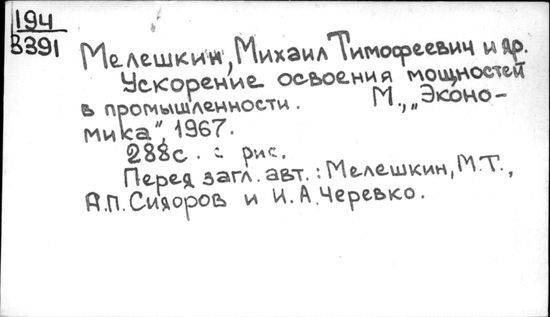 194
В391
Мелешкин, Михаил Тимофеевич и др.
Ускорение освоения мощностей
в промышленности. М., „Эконо-
мика", 1967.
288с. : рис.
Перед загл. авт.: Мелешкин, М.Т.,
А.П. Сидоров и И.А. Черевко.